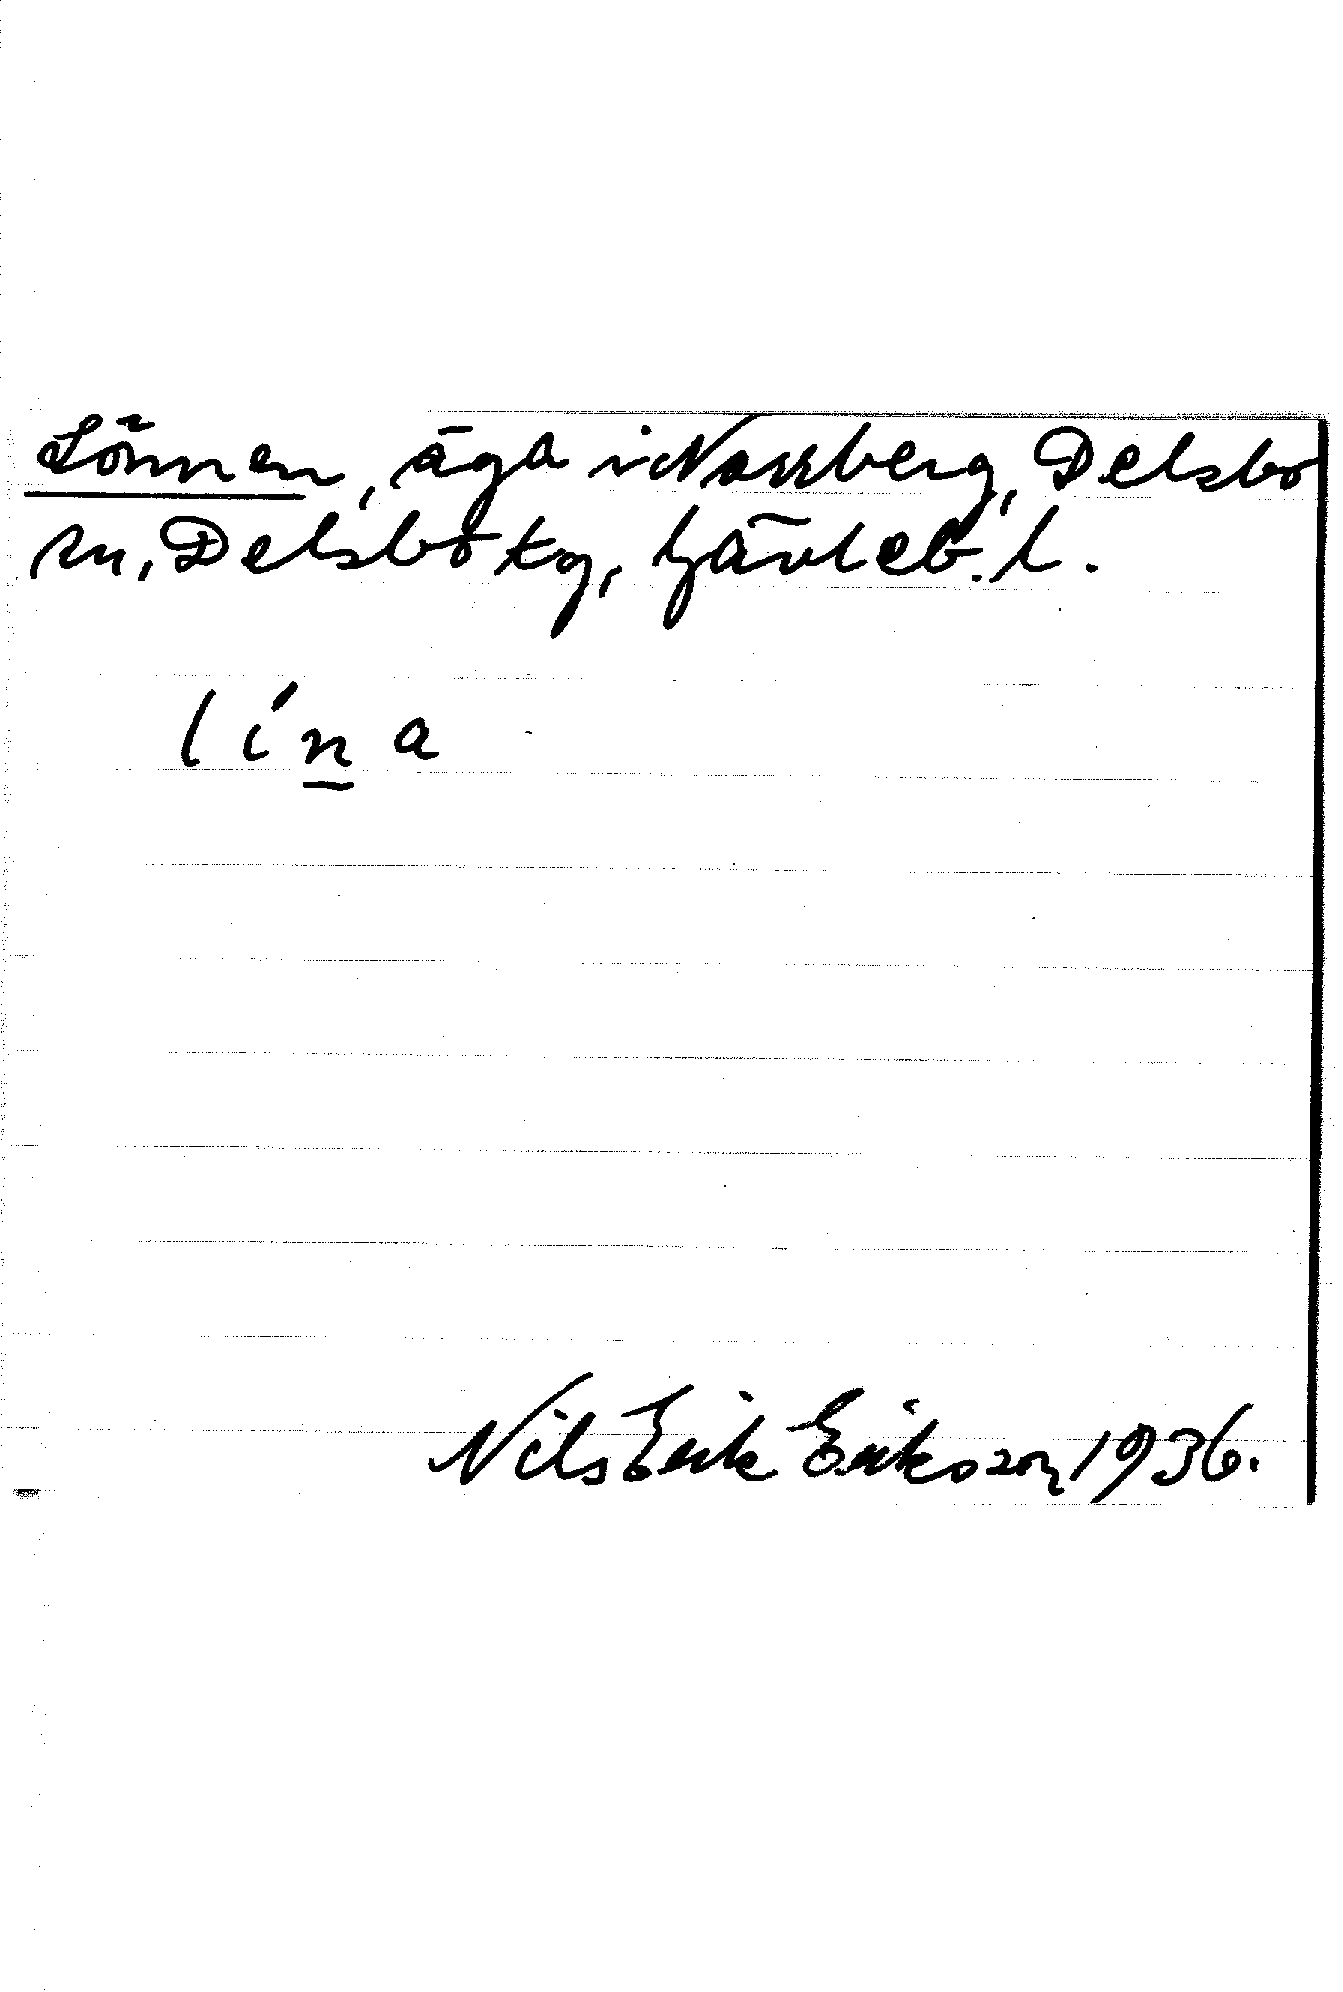 Lönnen, äga i Norrberg, Delsbo
sn, Delsbo tg, Gävleb. l.
lína
Nils Erik Eriksson 1936.